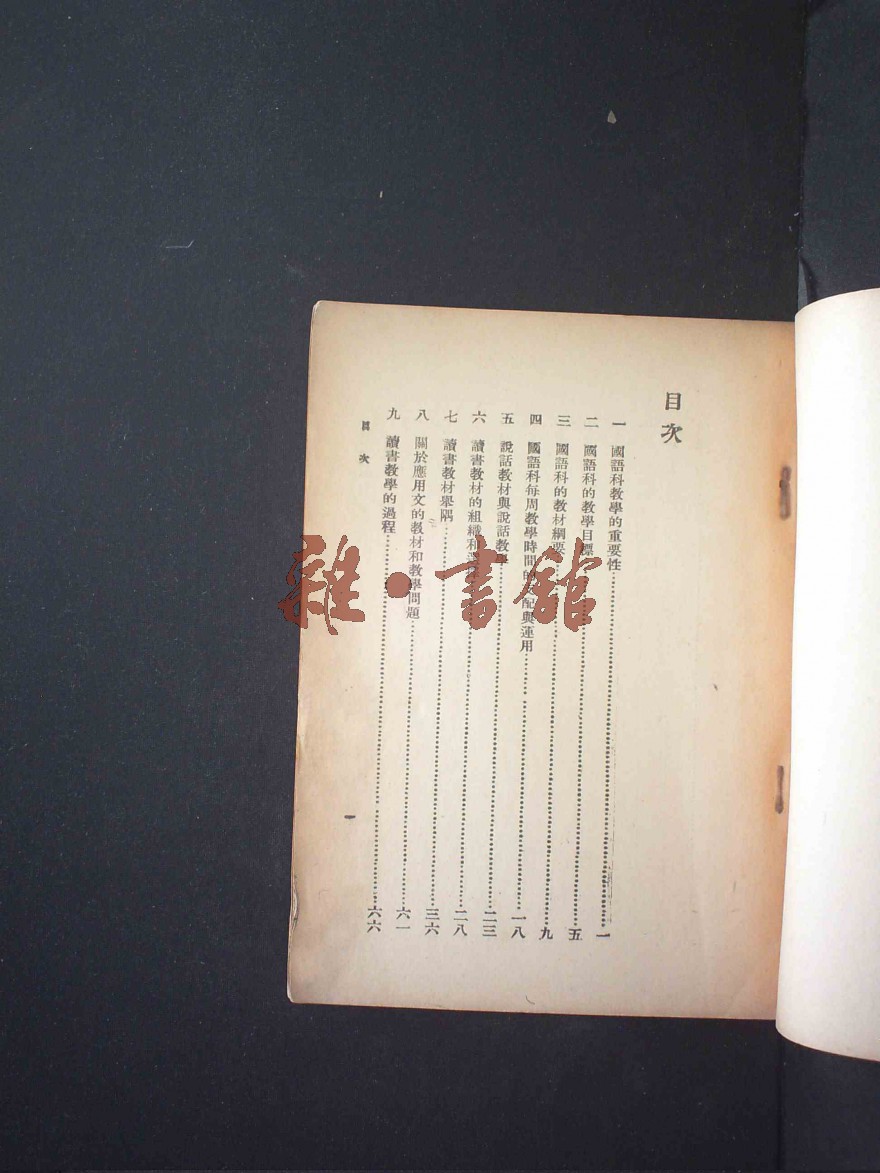 目次
一 國語科教學的重要性 一
二 國語科的教學目標 五
三 國語科的教材綱要 九
四 國語科每周教學時間的 配與運用 一八
五 說話教材與說話教學 二三
六 讀書教材的組織和 二八
七 讀書教材舉隅 三六
八 關於應用文的教材和教學問題 六一
九 讀書教學的過程 六六
目次
一
雜·書館